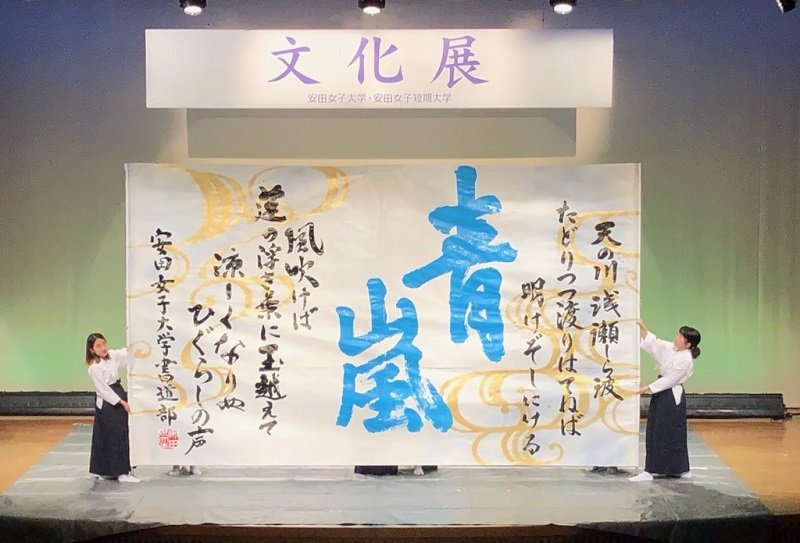 文化展
安田女子大学・安田女子短期大学
天の川浅瀬しら波
たどりつつ渡りはてねば
明けぞしにける
青
嵐
風吹けば
蓮の浮き葉に玉越えて
涼しくなりぬ
ひぐらしの声
安田女子大学書道部